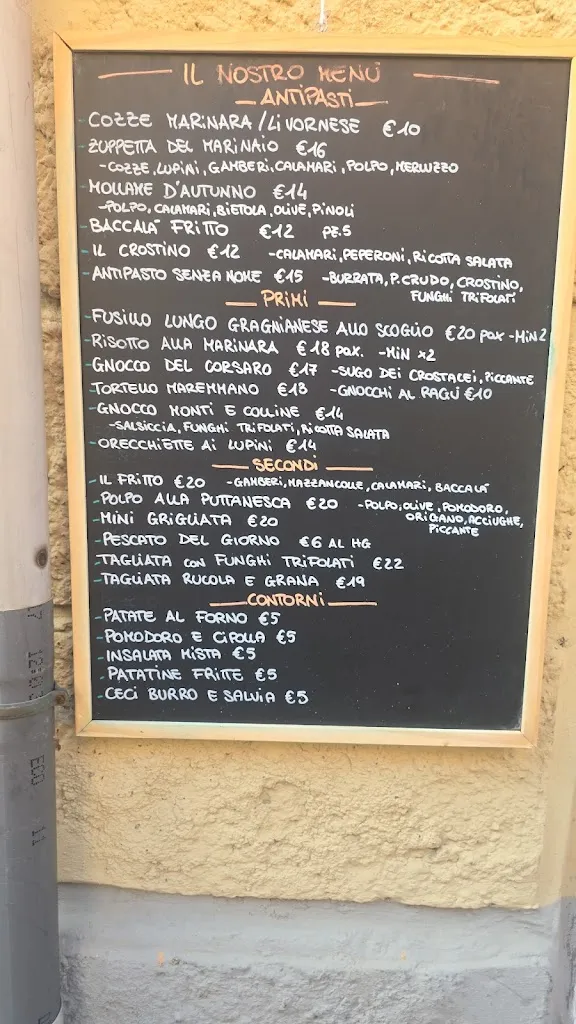 IL NOSTRO MENÙ
ANTIPASTI
- COZZE MARINARA/LIVORNESE €10
- ZUPPETTA DEL MARINAIO €16
- COZZE, LUPINI, GAMBERI, CALAMARI, POLPO, MERLUZZO
- MOLLAME D'AUTUNNO €14
- POLPO, CALAMARI, BIETOLA, OLIVE, PINOLI
- BACCALA' FRITTO €12 PZ.5
- IL CROSTINO €12 - CALAMARI, PEPERONI, RICOTTA SALATA
- ANTIPASTO SENZA NOME €15 - BURRATA, P.CRUDO, CROSTINO,
FUNGHI TRIFOLATI
PRIMI
- FUSILLO LUNGO GRAGNIANESE ALLO SCOGLIO €20 pax - MIN 2
- RISOTTO ALLA MARINARA €18 pax. - MIN x2
- GNOCCO DEL CORSARO €17 - SUGO DEI CROSTACEI, PICCANTE
TORTELLO MAREMMANO €18 - GNOCCHI AL RAGÙ €10
- GNOCCO MONTI E COLLINE €14
- SALSICCIA, FUNGHI TRIFOLATI, RICOTTA SALATA
- ORECCHIETTE AI LUPINI €14
SECONDI
- IL FRITTO €20 - GAMBERI, MAZZANCOLLE, CALAMARI, BACCALA'
- POLPO ALLA PUTTANESCA €20 - POLPO, OLIVE, POMODORO,
ORIGANO, ACCIUGHE,
PICCANTE
- MINI GRIGLIATA €20
- PESCATO DEL GIORNO €6 AL HG
- TAGLIATA con FUNGHI TRIFOLATI €22
- TAGLIATA RUCOLA E GRANA €19
CONTORNI
- PATATE AL FORNO €5
- POMODORO E CIPOLLA €5
- INSALATA MISTA €5
- PATATINE FRITTE €5
- CECI BURRO E SALVIA €5